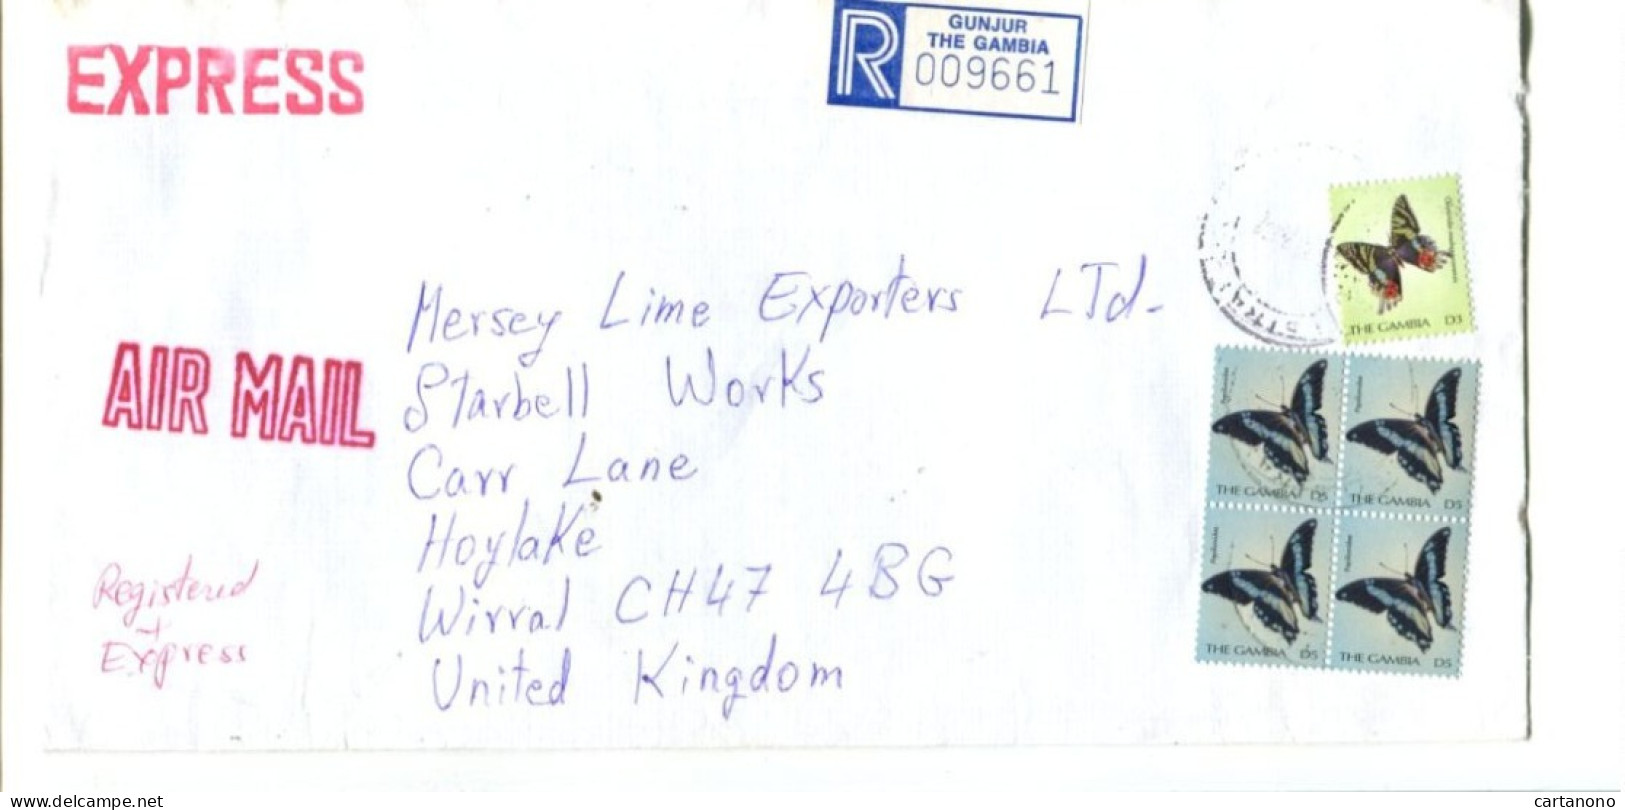 EXPRESS
R
GUNJUR
THE GAMBIA
009661
THE GAMBIA D3
AIR MAIL
Mersey Lime Exporters LTd-
Starbell Works
Carr Lane
Hoylake
Wirral CH47 4BG
United Kingdom
Registered
+
Express
THE GAMBIA D5
THE GAMBIA D5
THE GAMBIA D5
THE GAMBIA D5
www.delcampe.net
cartanono